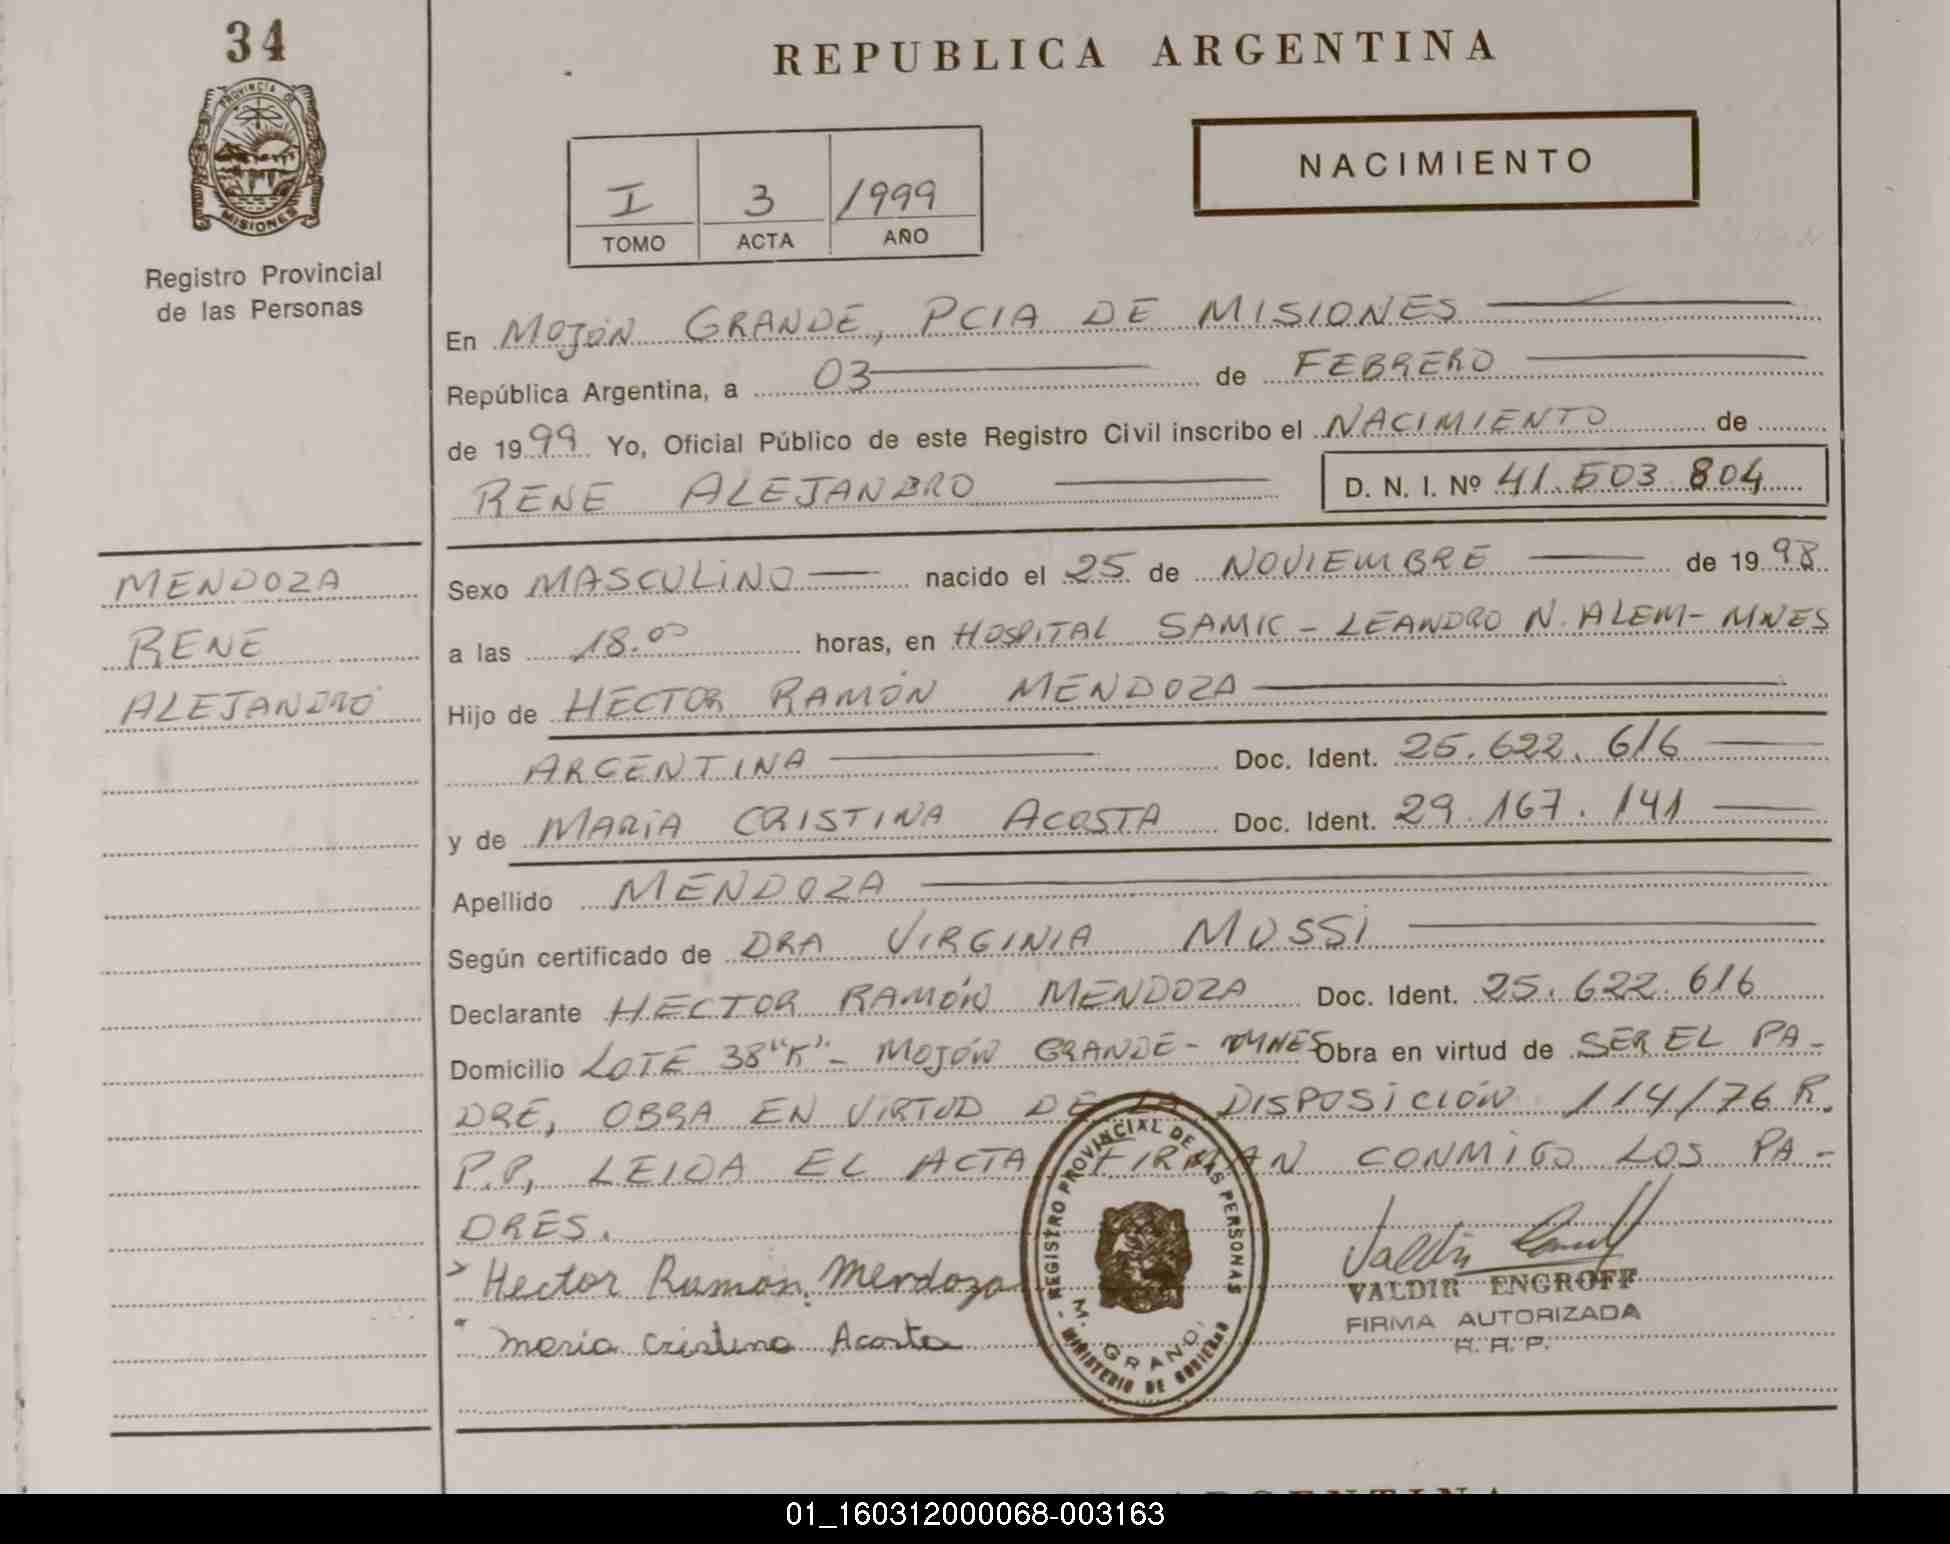 34
REPUBLICA ARGENTINA
PROVINCIA DE
MISIONES
NACIMIENTO
I 3 1999
TOMO ACTA AÑO
Registro Provincial
de las Personas
En MOJÓN GRANDE, PCIA DE MISIONES
República Argentina, a 03 de FEBRERO
de 1999 Yo, Oficial Público de este Registro Civil inscribo el NACIMIENTO de
RENE ALEJANDRO D. N. I. Nº 41.503.804
MENDOZA
RENE
ALEJANDRO
Sexo MASCULINO nacido el 25 de NOVIEMBRE de 1998
a las 18.00 horas, en HOSPITAL SAMIC - LEANDRO N. ALEM - MNES
Hijo de HECTOR RAMÓN MENDOZA
ARGENTINA Doc. Ident. 25.622.616
y de MARÍA CRISTINA ACOSTA Doc. Ident. 29.167.141
Apellido MENDOZA
Según certificado de DRA VIRGINIA MOSSI
Declarante HECTOR RAMÓN MENDOZA Doc. Ident. 25.622.616
Domicilio LOTE 38 "K" - MOJÓN GRANDE - MNES Obra en virtud de SER EL PA-
DRE, OBRA EN VIRTUD DE LA DISPOSICIÓN 114/76 R.
P.P, LEIDA EL ACTA FIRMAN CONMIGO LOS PA-
DRES.
Hector Ramon Mendoza
Maria Cristina Acosta
REGISTRO PROVINCIAL DE LAS PERSONAS
M. GRANDE
MINISTERIO DE GOBIERNO
VALDIR ENGROFF
FIRMA AUTORIZADA
R. R. P.
ARGENTINA
01_160312000068-003163